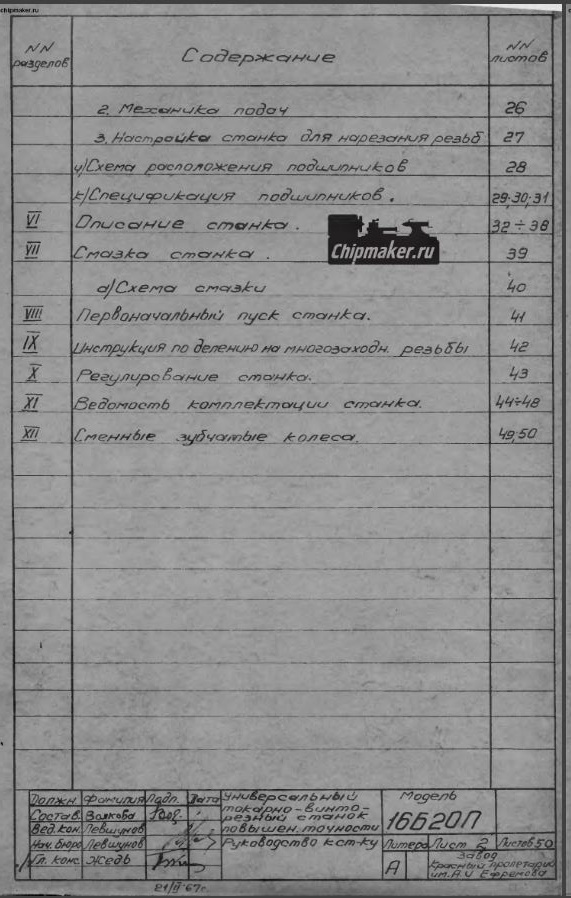 chipmaker.ru
NN разделов Содержание NN листов
2. Механика подач 26
3. Настройка станка для нарезания резьб 27
и) Схема расположения подшипников 28
к) Спецификация подшипников. 29;30;31
VI Описание станка. 32 ÷ 38
Chipmaker.ru
VII Смазка станка. 39
а) Схема смазки 40
VIII Первоначальный пуск станка. 41
IX Инструкция по делению на многозаходн. резьбы 42
X Регулирование станка. 43
XI Ведомость комплектации станка. 44÷48
XII Сменные зубчатые колеса. 49;50
Должн. Фамилия Подп. Дата
Состав. Волкова
Вед.кон. Левшунов
Нач. бюро Левшунов
Гл. конс. Жедь
21/II 67г.
Универсальный
токарно-винто-
резный станок
повышен. точности
Руководство к ст-ку
Модель
16Б20П
Литера Лист 2 Листов 50
А
Завод
Красный пролетарий
им. А.И Ефремова